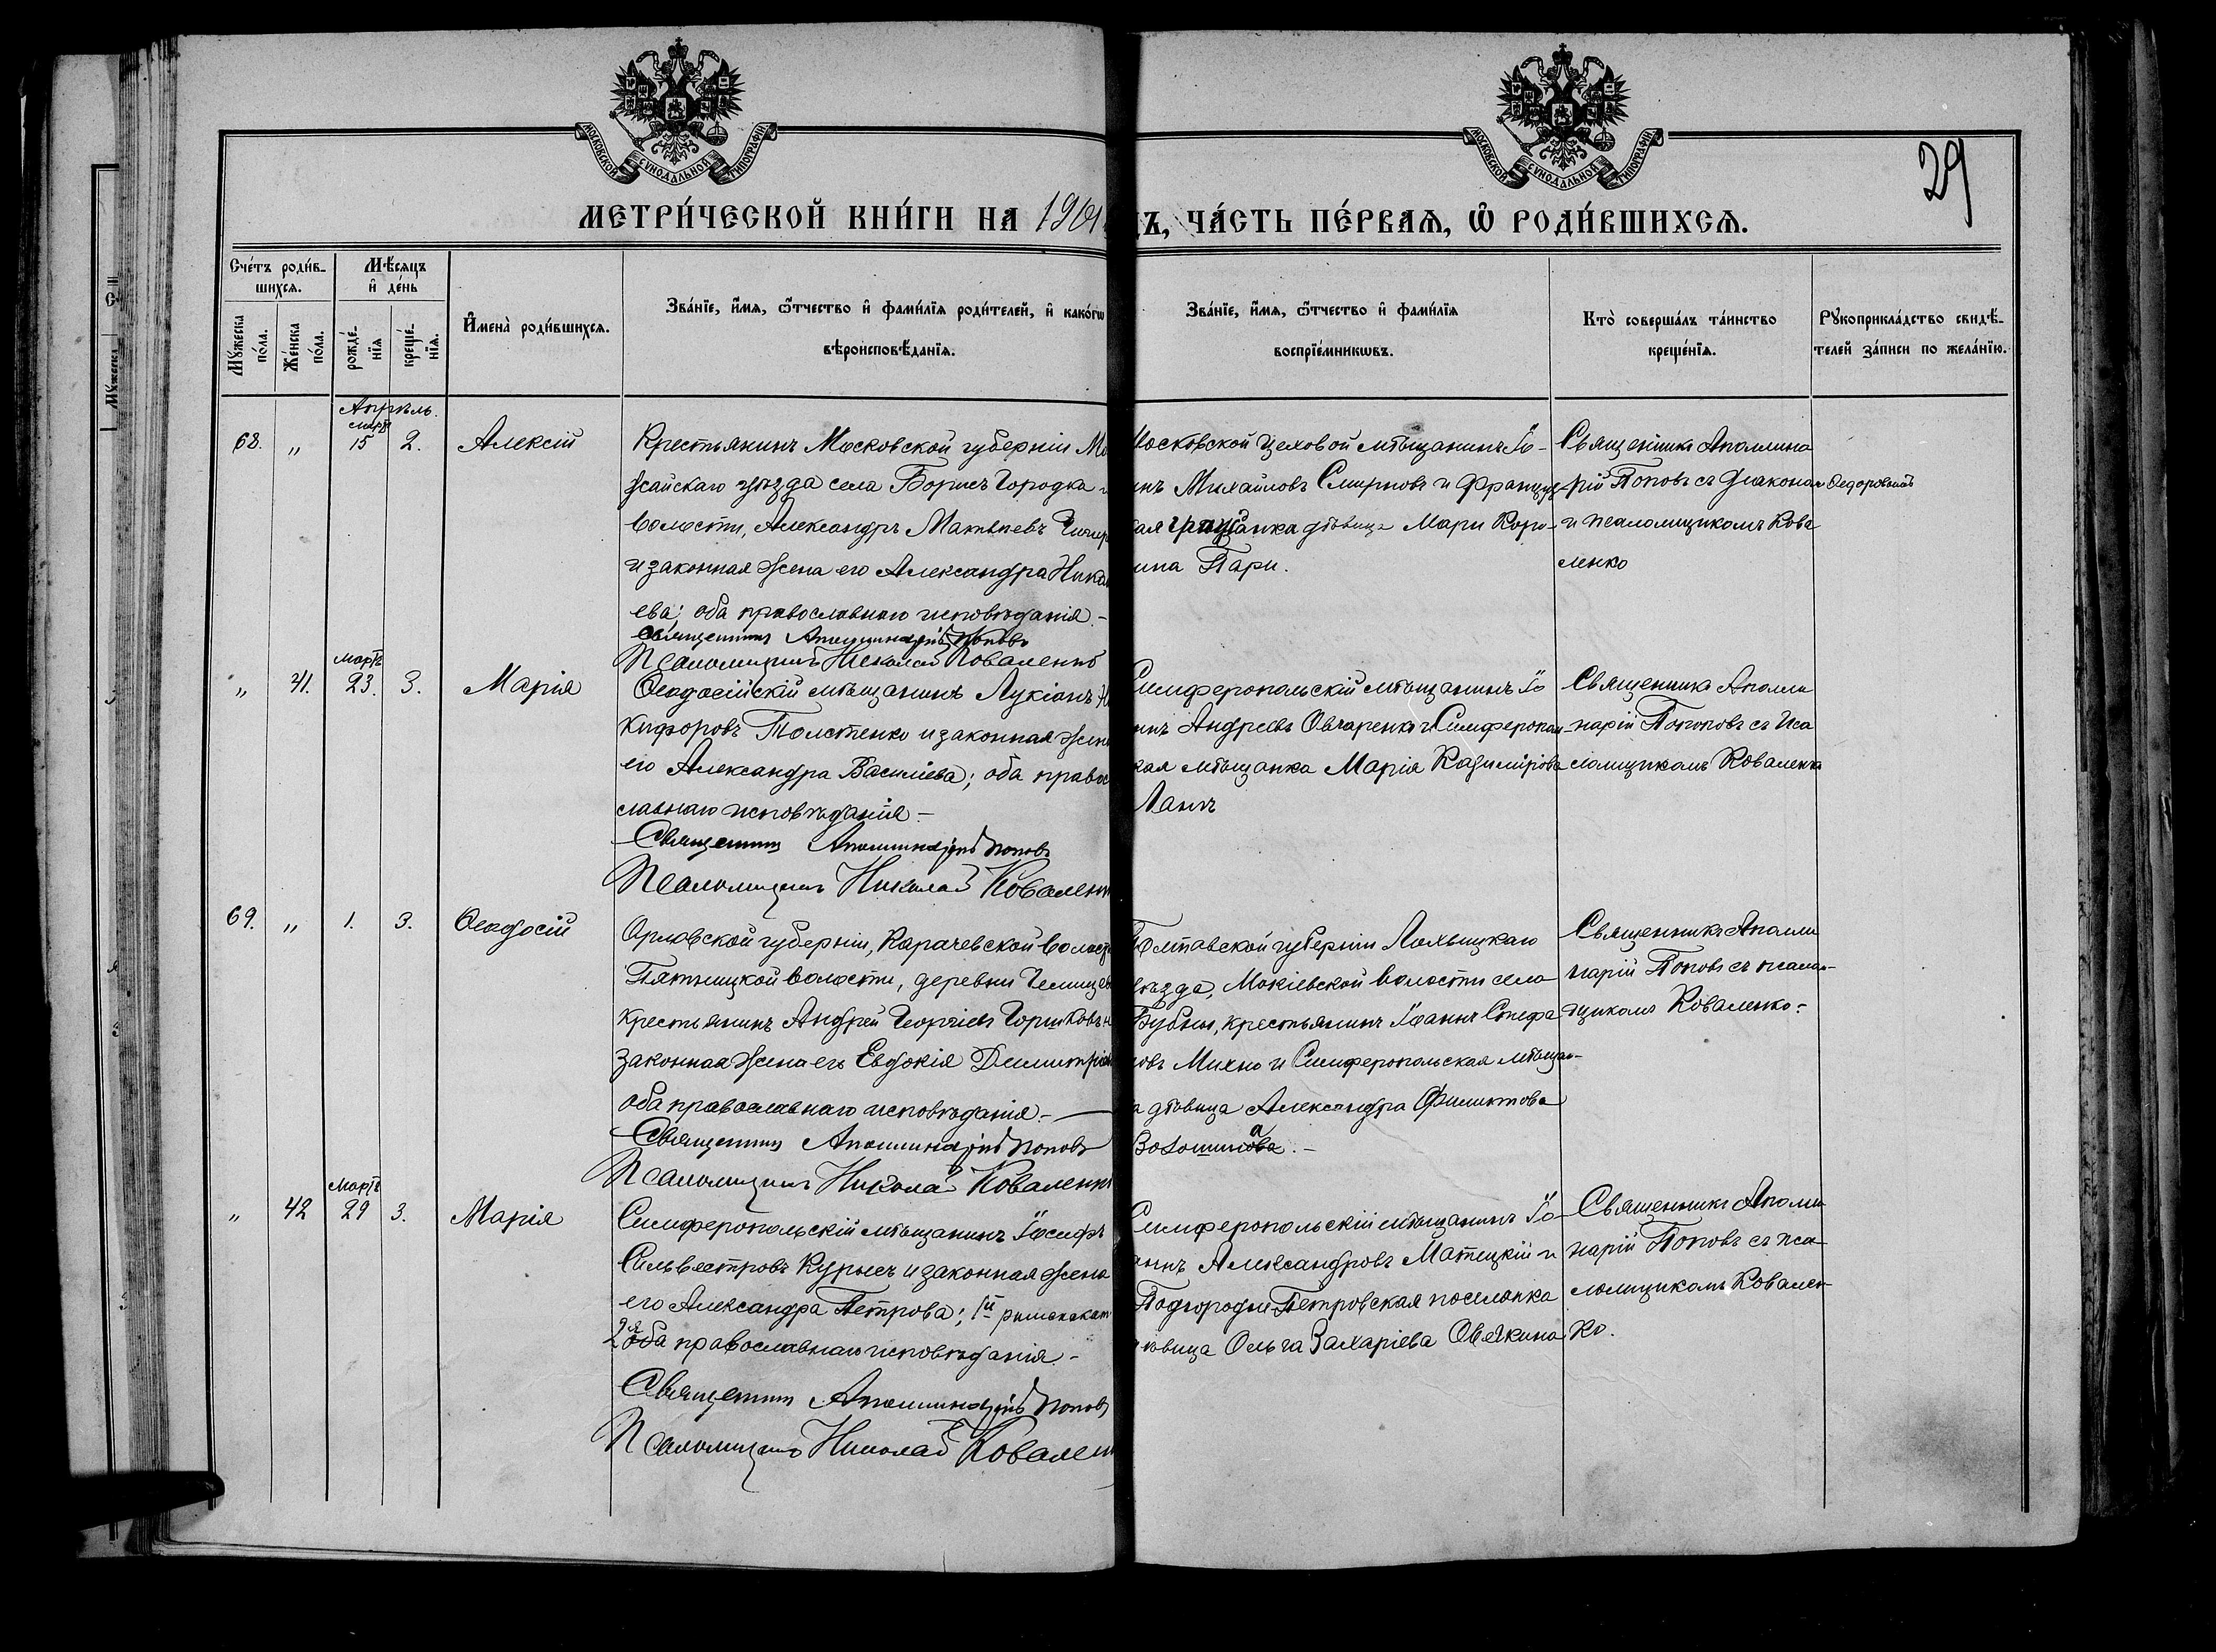 МОСКОВСКОЙ СѴНОДАЛЬНОЙ ТИПОГРАФІИ
МОСКОВСКОЙ СѴНОДАЛЬНОЙ ТИПОГРАФІИ
29
МЕТРИ́ЧЕСКОЙ КНИ́ГИ НА 1901
ЧА́СТЬ ПЕ́РВАѦ, Ѡ҆ РОДИ́ВШИХСѦ.
Сче́тъ роди́в-
шихсѧ.
Мѣ́сѧцъ
и҆ де́нь
Мꙋ́жеска
по́ла.
Же́нска
по́ла.
рожде́-
нїѧ
креще́-
нїѧ.
И҆мена̀ роди́вшихсѧ.
Зва́нїе, и҆́мѧ, ѻ҆́тчество и҆ фами́лїѧ роди́телей, и҆ како́гѡ
вѣроисповѣ́данїѧ.
Зва́нїе, и҆́мѧ, ѻ҆́тчество и҆ фами́лїѧ
воспрїе́мникѡвъ.
Кто̀ соверша́лъ та́инство
креще́нїѧ.
Рꙋкоприкла́дство свидѣ́-
телей за́писи по жела́нїю.
Апрѣль.
мартъ
68. „ 15 2. Алексій
Крестьянинъ Московской губерніи Мо
жайскаго уѣзда села Борисъ Городка и
волости, Александръ Матвѣевъ
и законная жена его Александра Никол
ева; оба православнаго исповѣданія.-
Священникъ Аполлинарій Поповъ
Псаломщикъ Николай Коваленко
Московской Цеховой мѣщанинъ Іо-
нъ Михайловъ Смирновъ и Француз-
кая гражданка дѣвица Мари Коро-
ина Пари.
Священникъ Аполлина
рій Поповъ съ діаконом Федоровымъ
и псаломщикомъ Кова
ленко
Мартъ
„ 41. 23. 3. Марія
Ѳеодосійскій мѣщанинъ Лукіанъ Ни
кифоровъ Толстенко и законная жена
его Александра Василіева; оба правос
лавнаго исповѣданія.-
Священникъ Аполлинарій Поповъ
Псаломщикъ Николай Коваленк
Симферопольскій мѣщанинъ Іо
ннъ Андреевъ Овчаренко и Симферополь-
кая мѣщанка Марія Казимірова
Ланъ
Священникъ Аполли
нарій Попоповъ съ Пса
ломщикомъ Коваленко
69. „ 1. 3. Ѳеодосій
Орловской губерніи, Карачевской волост
Пятницкой волости, деревни
крестьянинъ Андрей Георгіевъ Горшковъ и
законная жена его Евдокія Димитріев
оба православнаго исповѣданія.-
Священникъ Аполлинарій Поповъ
Псаломщикъ Николай Коваленк
Полтавской губерніи Лохвицкаго
уѣзда, Мокіевской волости села
Бубны, крестьянинъ Іоаннъ Стефа
новъ Михно и Симферопольская мѣщан-
а дѣвица Александра Филиппова
Волошинова.-
а
Священникъ Аполли
нарій Поповъ съ псалом-
щикомъ Коваленко.
Мартъ
„ 42 29 3. Марія
Симферопольскій мѣщанинъ Іосифъ
Сильвестровъ Курысъ и законная жена
его Александра Петрова; 1й римскокат
2я оба православнаго исповѣданія.-
Священникъ Аполлинарій Поповъ
Псаломщикъ Николай Ковален
Симферопольскій мѣщанинъ Іо-
аннъ Александровъ Матецкій и
Подгородне Петровская поселянка
дѣвица Ольга Захаріева Овякина
Священникъ Аполи
нарій Поповъ съ пса-
ломщикомъ Ковален-
ко.